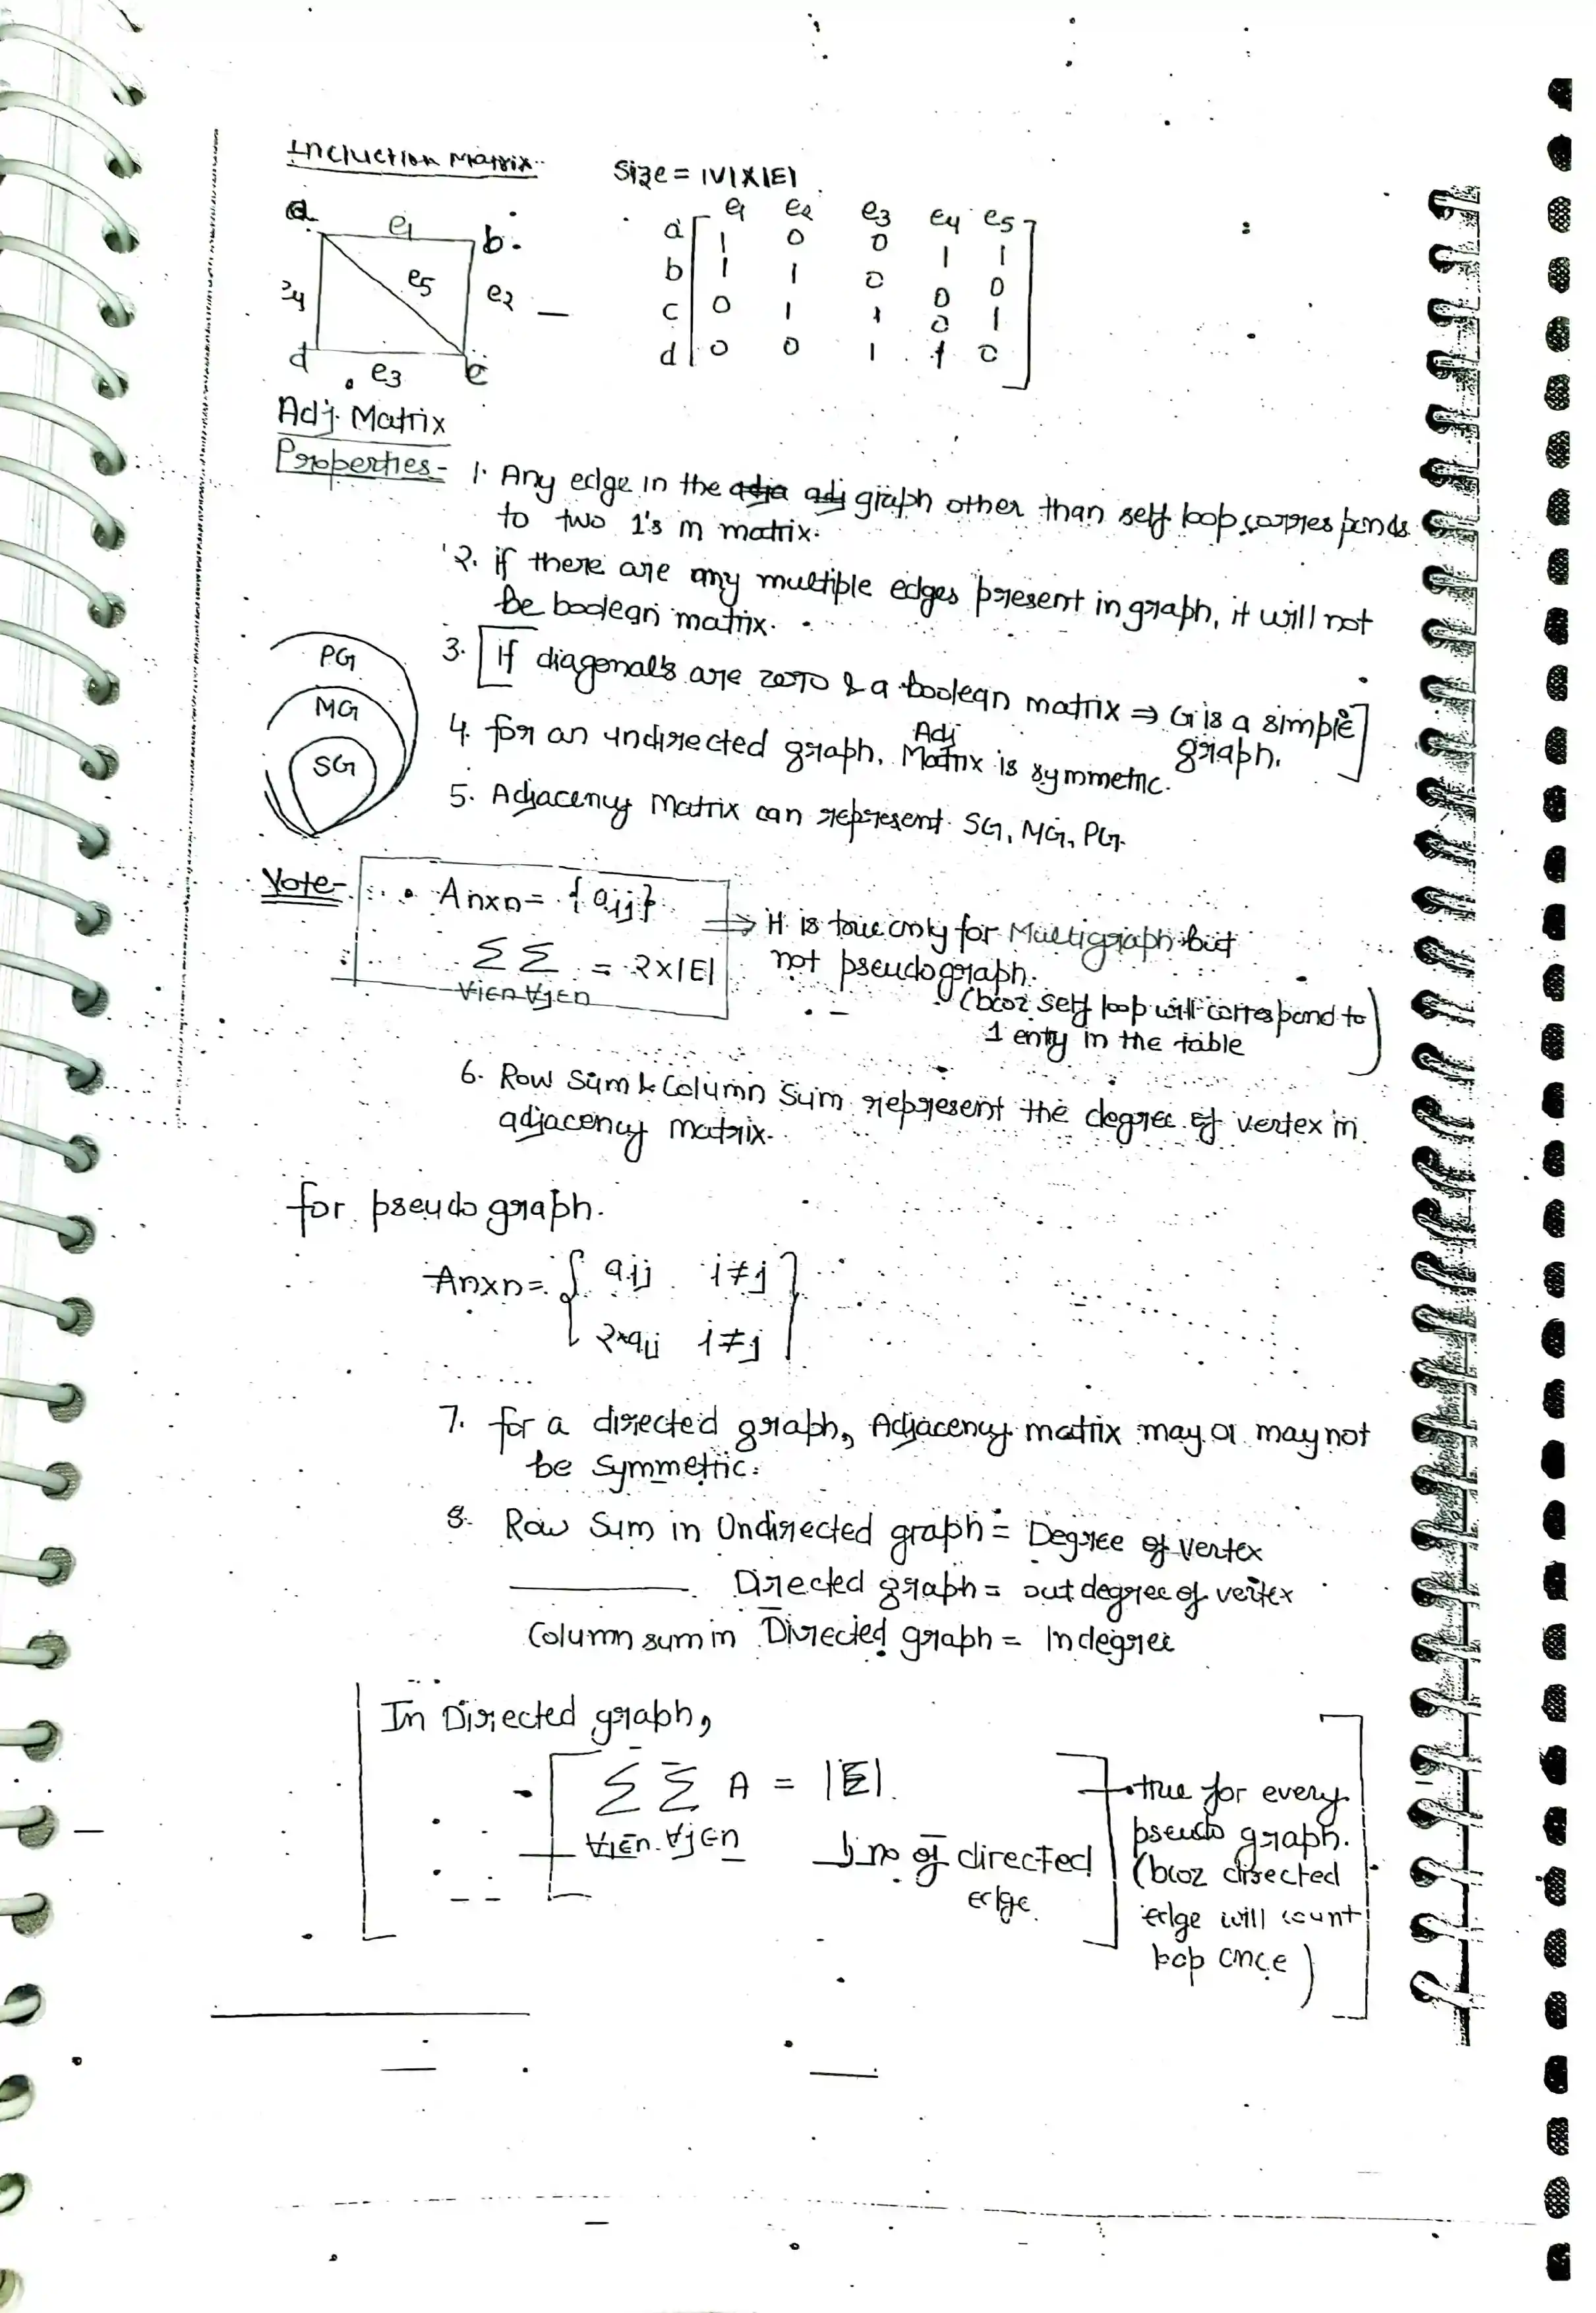 Incluction Matrix
Size = |V|X|E|
a e1 b.
e5 e2
d e3 c
e1 e2 e3 e4 e5
a 1 0 0 1 1
b 1 1 0 0 0
c 0 1 1 0 1
d 0 0 1 1 0
Adj. Matrix
Properties- 1. Any edge in the adja adj graph other than self loop corresponds
to two 1's in matrix.
2. if there are any multiple edges present in graph, it will not
be boolean matrix.
3. If diagonal's are zero & a boolean matrix ⇒ G is a simple
graph.
4. for an undirected graph, Adj Matrix is symmetric.
5. Adjacency Matrix can represent SG, MG, PG.
PG
MG
SG
Note- Anxn = {aij}
ΣΣ = 2x|E|
∀i∈n ∀j∈n
⇒ it is true only for Multigraph but
not pseudograph.
(bcoz self loop will correspond to
1 entry in the table
6. Row Sum & Column Sum represent the degree of vertex in
adjacency matrix.
for pseudo graph.
Anxn = { aij i≠j
2*aij i≠j }
7. for a directed graph, Adjacency matrix may or may not
be symmetric.
8. Row Sum in Undirected graph = Degree of vertex
Directed graph = out degree of vertex
Column sum in Directed graph = Indegree
In Directed graph,
ΣΣ A = |E|
∀i∈n. ∀j∈n
no of directed
edge.
true for every
pseudo graph.
(bcoz directed
edge will count
loop once)